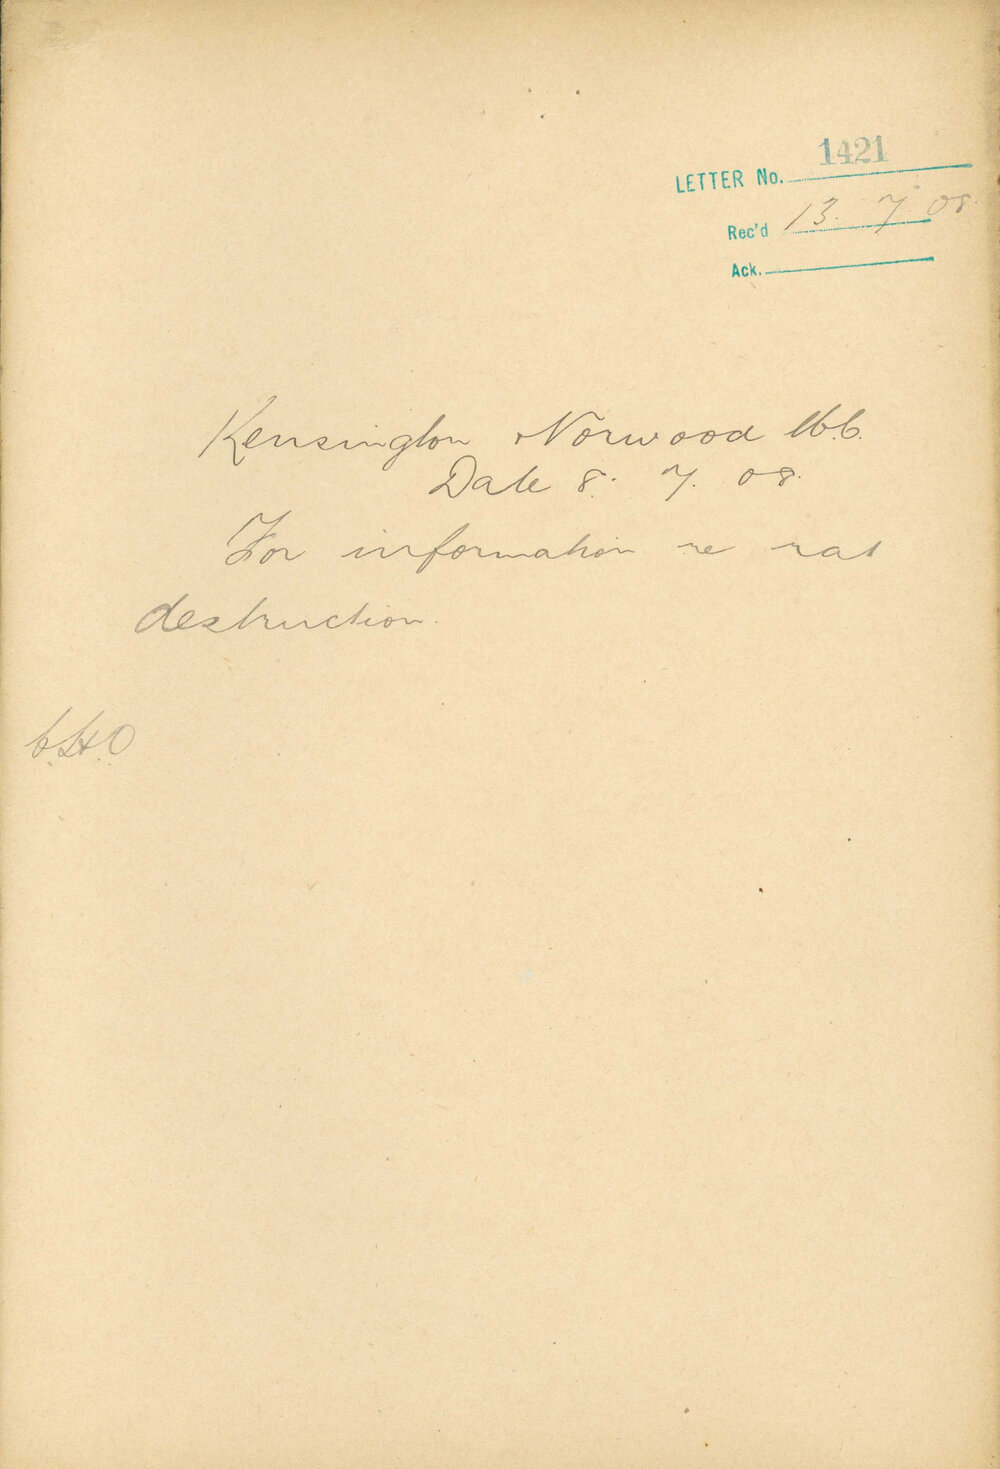 LETTER No. 1421
Rec'd 13. 7. 08.
Ack.
Kensington Norwood
Date 8. 7. 08.
For information re rat
destruction.
C.H.O